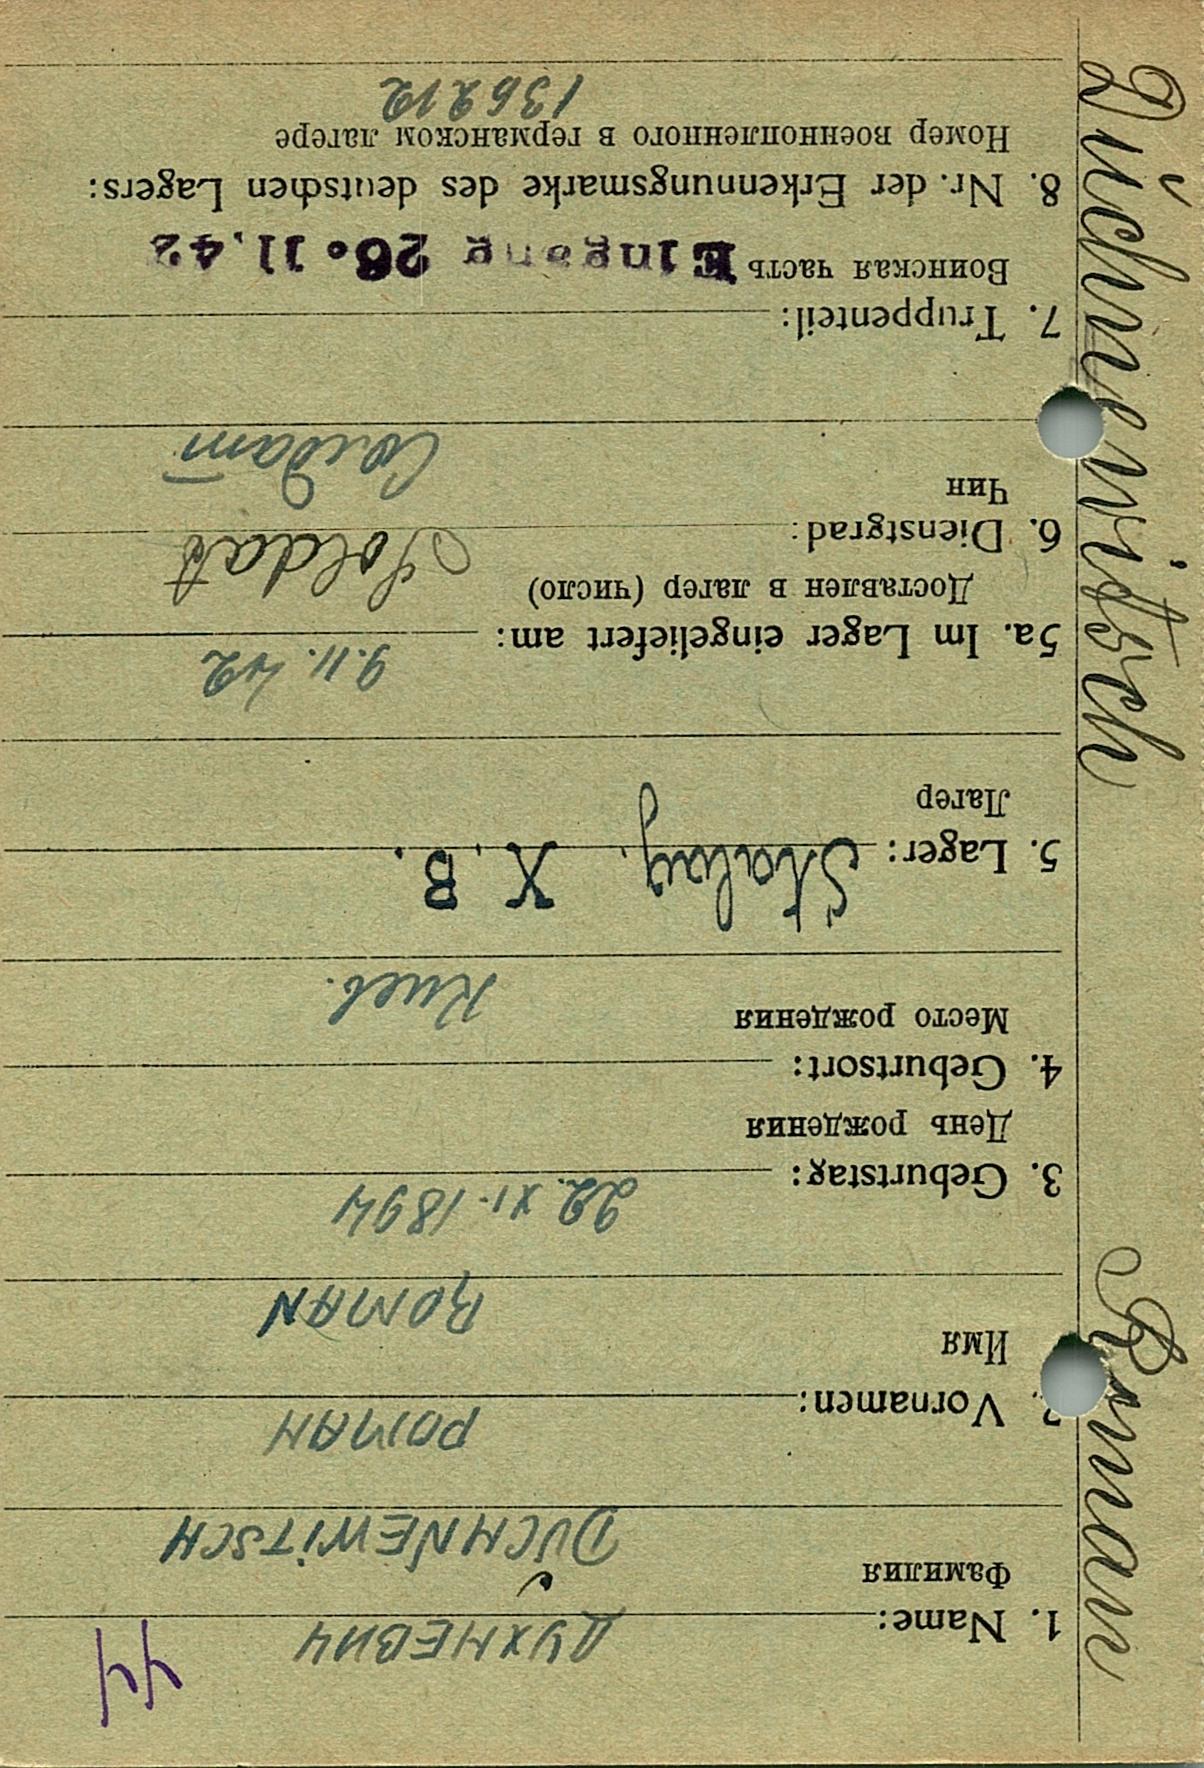 44
1. Name: ДУХНЕВИЧ
Фамилия
DUCHNEWITSCH
2. Vornamen: РОМАН
Имя
ROMAN
3. Geburtstag: 22. XI. 1894
День рождения
4. Geburtsort:
Место рождения
Киев.
5. Lager: Stalag, X. B.
Лагер
5a. Im Lager eingeliefert am: 9.11.42
Доставлен в лагер (число)
6. Dienstgrad: Soldat
Чин
Солдат
7. Truppenteil:
Воинская часть Eingang 26. 11. 42
8. Nr. der Erkennungsmarke des deutschen Lagers:
Номер военнопленного в германском лагере
136212
Duchnewitsch Roman